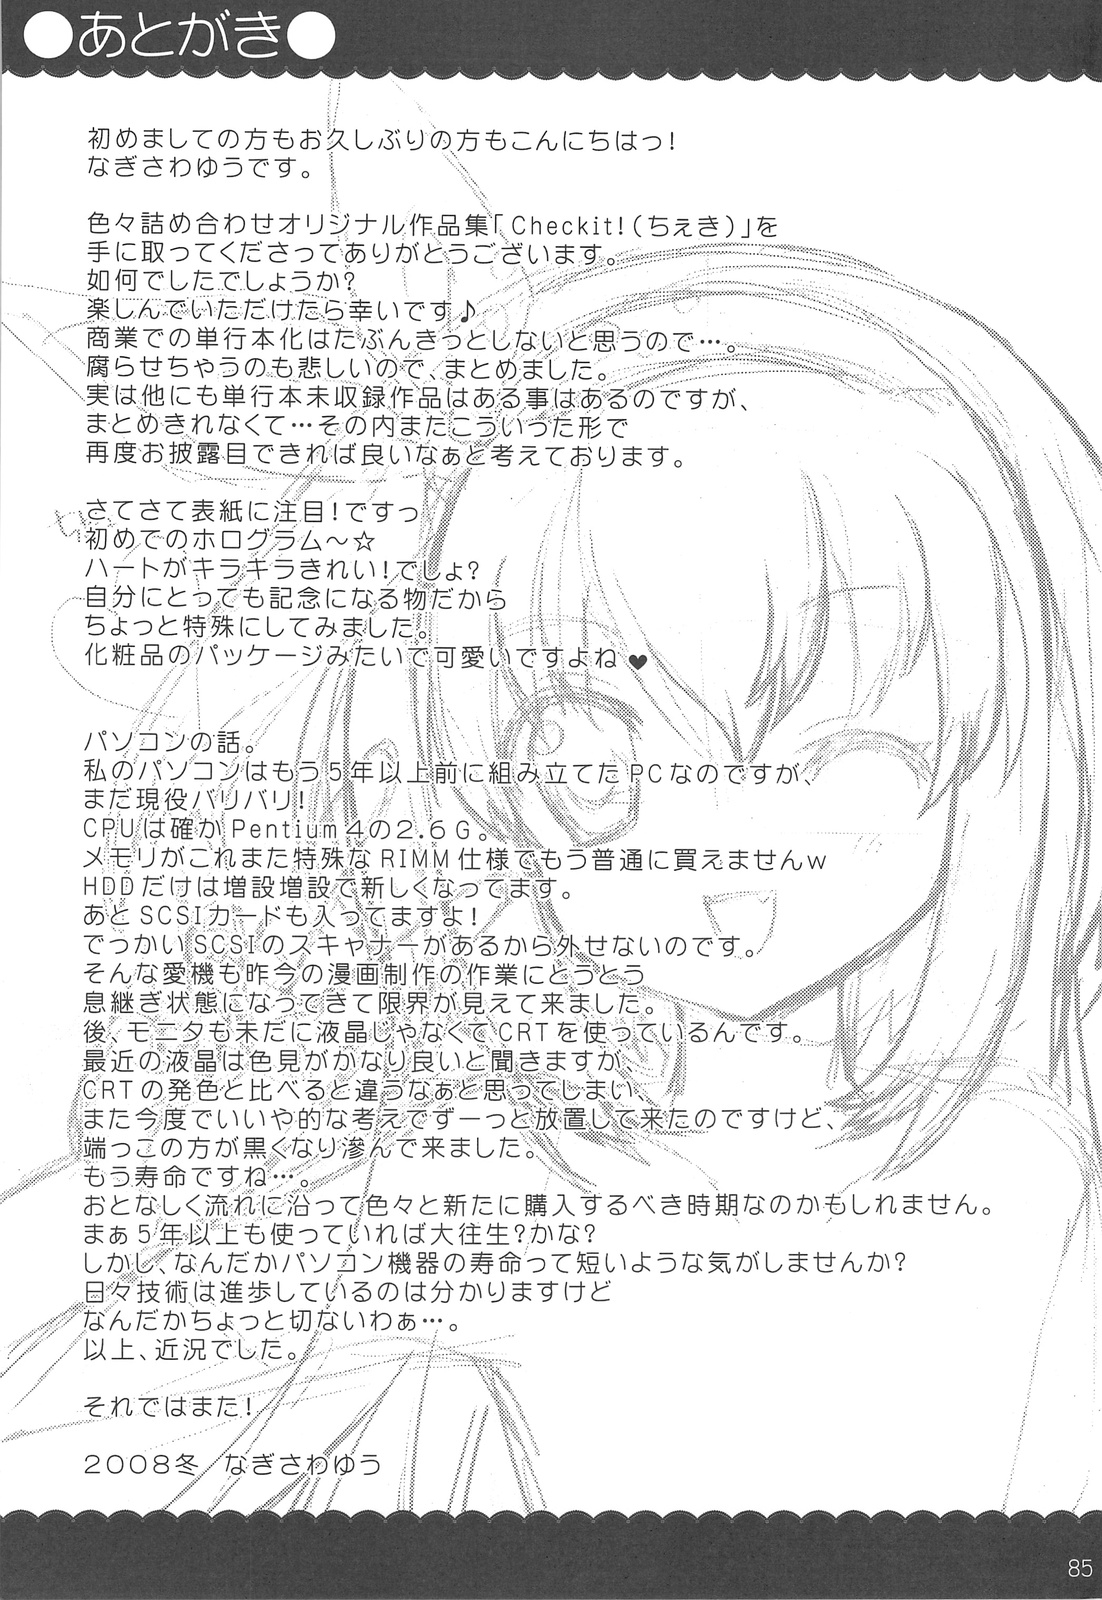 ●あとがき●
初めましての方もお久しぶりの方もこんにちはっ！
なぎさわゆうです。
色々詰め合わせオリジナル作品集「Checkit!（ちぇき）」を
手に取ってくださってありがとうございます。
如何でしたでしょうか？
楽しんでいただけたら幸いです♪
商業での単行本化はたぶんきっとしないと思うので…。
腐らせちゃうのも悲しいので、まとめました。
実は他にも単行本未収録作品はある事はあるのですが、
まとめきれなくて…その内またこういうた形で
再度お披露目できれば良いなぁと考えております。
さてさて表紙に注目！ですっ
初めてのホログラム～☆
ハートがキラキラきれい！でしょ？
自分にとっても記念になる物だから
ちょっと特殊にしてみました。
化粧品のパッケージみたいで可愛いですよね♥
パソコンの話。
私のパソコンはもう５年以上前に組み立てたPCなのですが、
まだ現役バリバリ！
CPUは確かPentium４の２.６G。
メモリがこれまた特殊なRIMM仕様でもう普通に買えませんw
HDDだけは増設増設で新しくなってます。
あとSCSIカードも入ってますよ！
でっかいSCSIのスキャナーがあるから外せないのです。
そんな愛機も昨今の漫画制作の作業にとうとう
息継ぎ状態になってきて限界が見えて来ました。
後、モニタも未だに液晶じゃなくてCRTを使っているんです。
最近の液晶は色見がかなり良いと聞きますが、
CRTの発色と比べると違うなぁと思ってしまい、
また今度でいいや的な考えでずーっと放置して来たのですけど、
端っこの方が黒くなり滲んで来ました。
もう寿命ですね…。
おとなしく流れに沿って色々と新たに購入するべき時期なのかもしれません。
まぁ５年以上も使っていれば大往生？かな？
しかし、なんだかパソコン機器の寿命って短いような気がしませんか？
日々技術は進歩しているのは分かりますけど
なんだかちょっと切ないわぁ…。
以上、近況でした。
それではまた！
２００８冬　なぎさわゆう
85